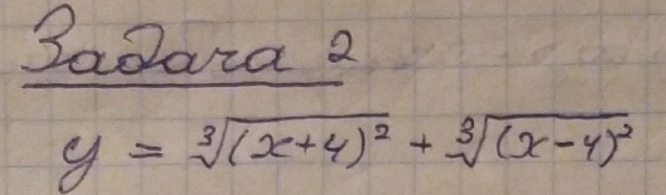 Задача 2
y = ∛(x+4)² + ∛(x-4)²